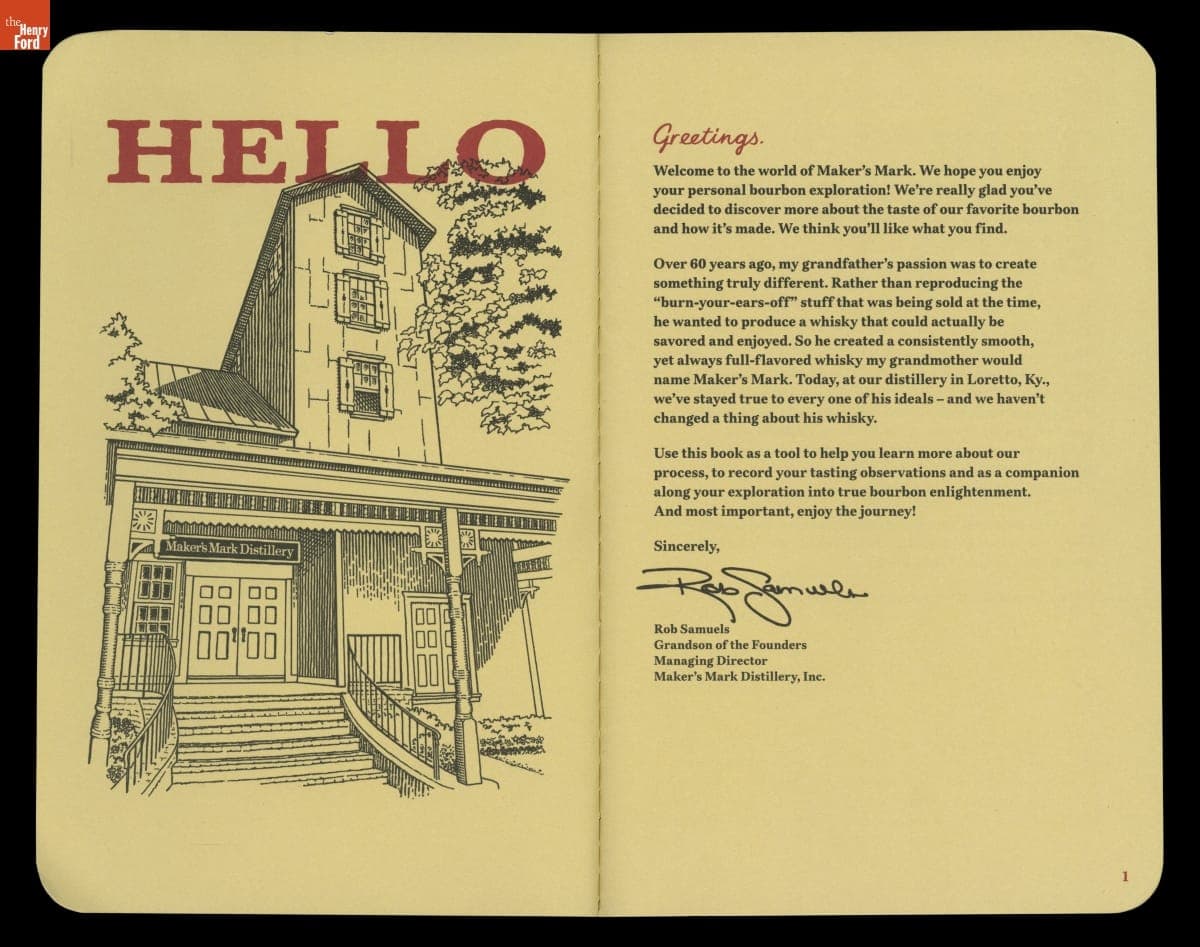 the
Henry
Ford
HELLO
Maker's Mark Distillery
Greetings.
Welcome to the world of Maker's Mark. We hope you enjoy
your personal bourbon exploration! We're really glad you've
decided to discover more about the taste of our favorite bourbon
and how it's made. We think you'll like what you find.
Over 60 years ago, my grandfather's passion was to create
something truly different. Rather than reproducing the
“burn-your-ears-off” stuff that was being sold at the time,
he wanted to produce a whisky that could actually be
savored and enjoyed. So he created a consistently smooth,
yet always full-flavored whisky my grandmother would
name Maker's Mark. Today, at our distillery in Loretto, Ky.,
we've stayed true to every one of his ideals – and we haven't
changed a thing about his whisky.
Use this book as a tool to help you learn more about our
process, to record your tasting observations and as a companion
along your exploration into true bourbon enlightenment.
And most important, enjoy the journey!
Sincerely,
Rob Samuels
Rob Samuels
Grandson of the Founders
Managing Director
Maker's Mark Distillery, Inc.
1